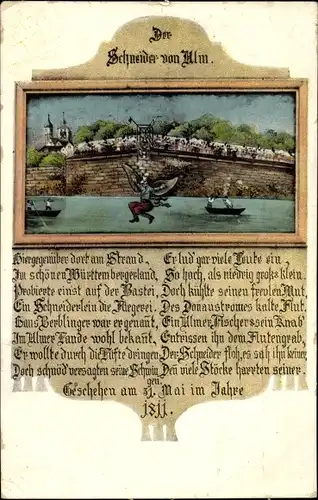 Der
Schneider von Ulm.
Hiergegenüber dort am Strand,
Im schönen Württembergerland,
Probierte einst auf der Bastei,
Ein Schneiderlein die Fliegerei.
Hans Berblinger war er genant,
Im Ulmer Lande wohl bekant.
Er wollte durch die Lüfte dringen
Doch schnöd versagten seine Schwin
gen.
Er lud gar viele Leute ein,
So hoch, als niedrig, gross klein.
Doch kühlte seinen frevlen Mut,
Des Donaustromes kalte Flut.
Ein Ulmer Fischer u. sein Knab'
Entrissen ihn dem Flutengrab,
Der Schneider floh, es sah ihn keiner
Den viele Stöcke harrten seiner.
Geschehen am 31. Mai im Jahre
1811.